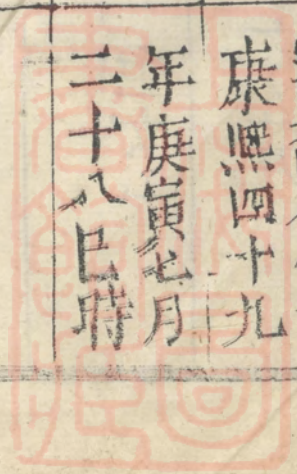 康熙四十九
年庚寅七月
二十八巳時